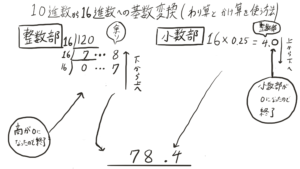 10進数から16進数への基数変換(わり算とかけ算を使う方法)
整数部
余り
16)120
16) 7 … 8
16) 0 … 7
下から上へ
商が0に
なったので終了
小数部
16×0.25=4.0
整数部
上から下へ
小数部が
0になったので
終了
78.4